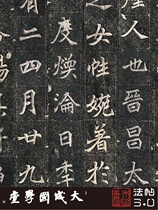 人也晉昌太
女性婉著於
度煥淪日季
二四月廿九
大成國學堂
法帖
3.0